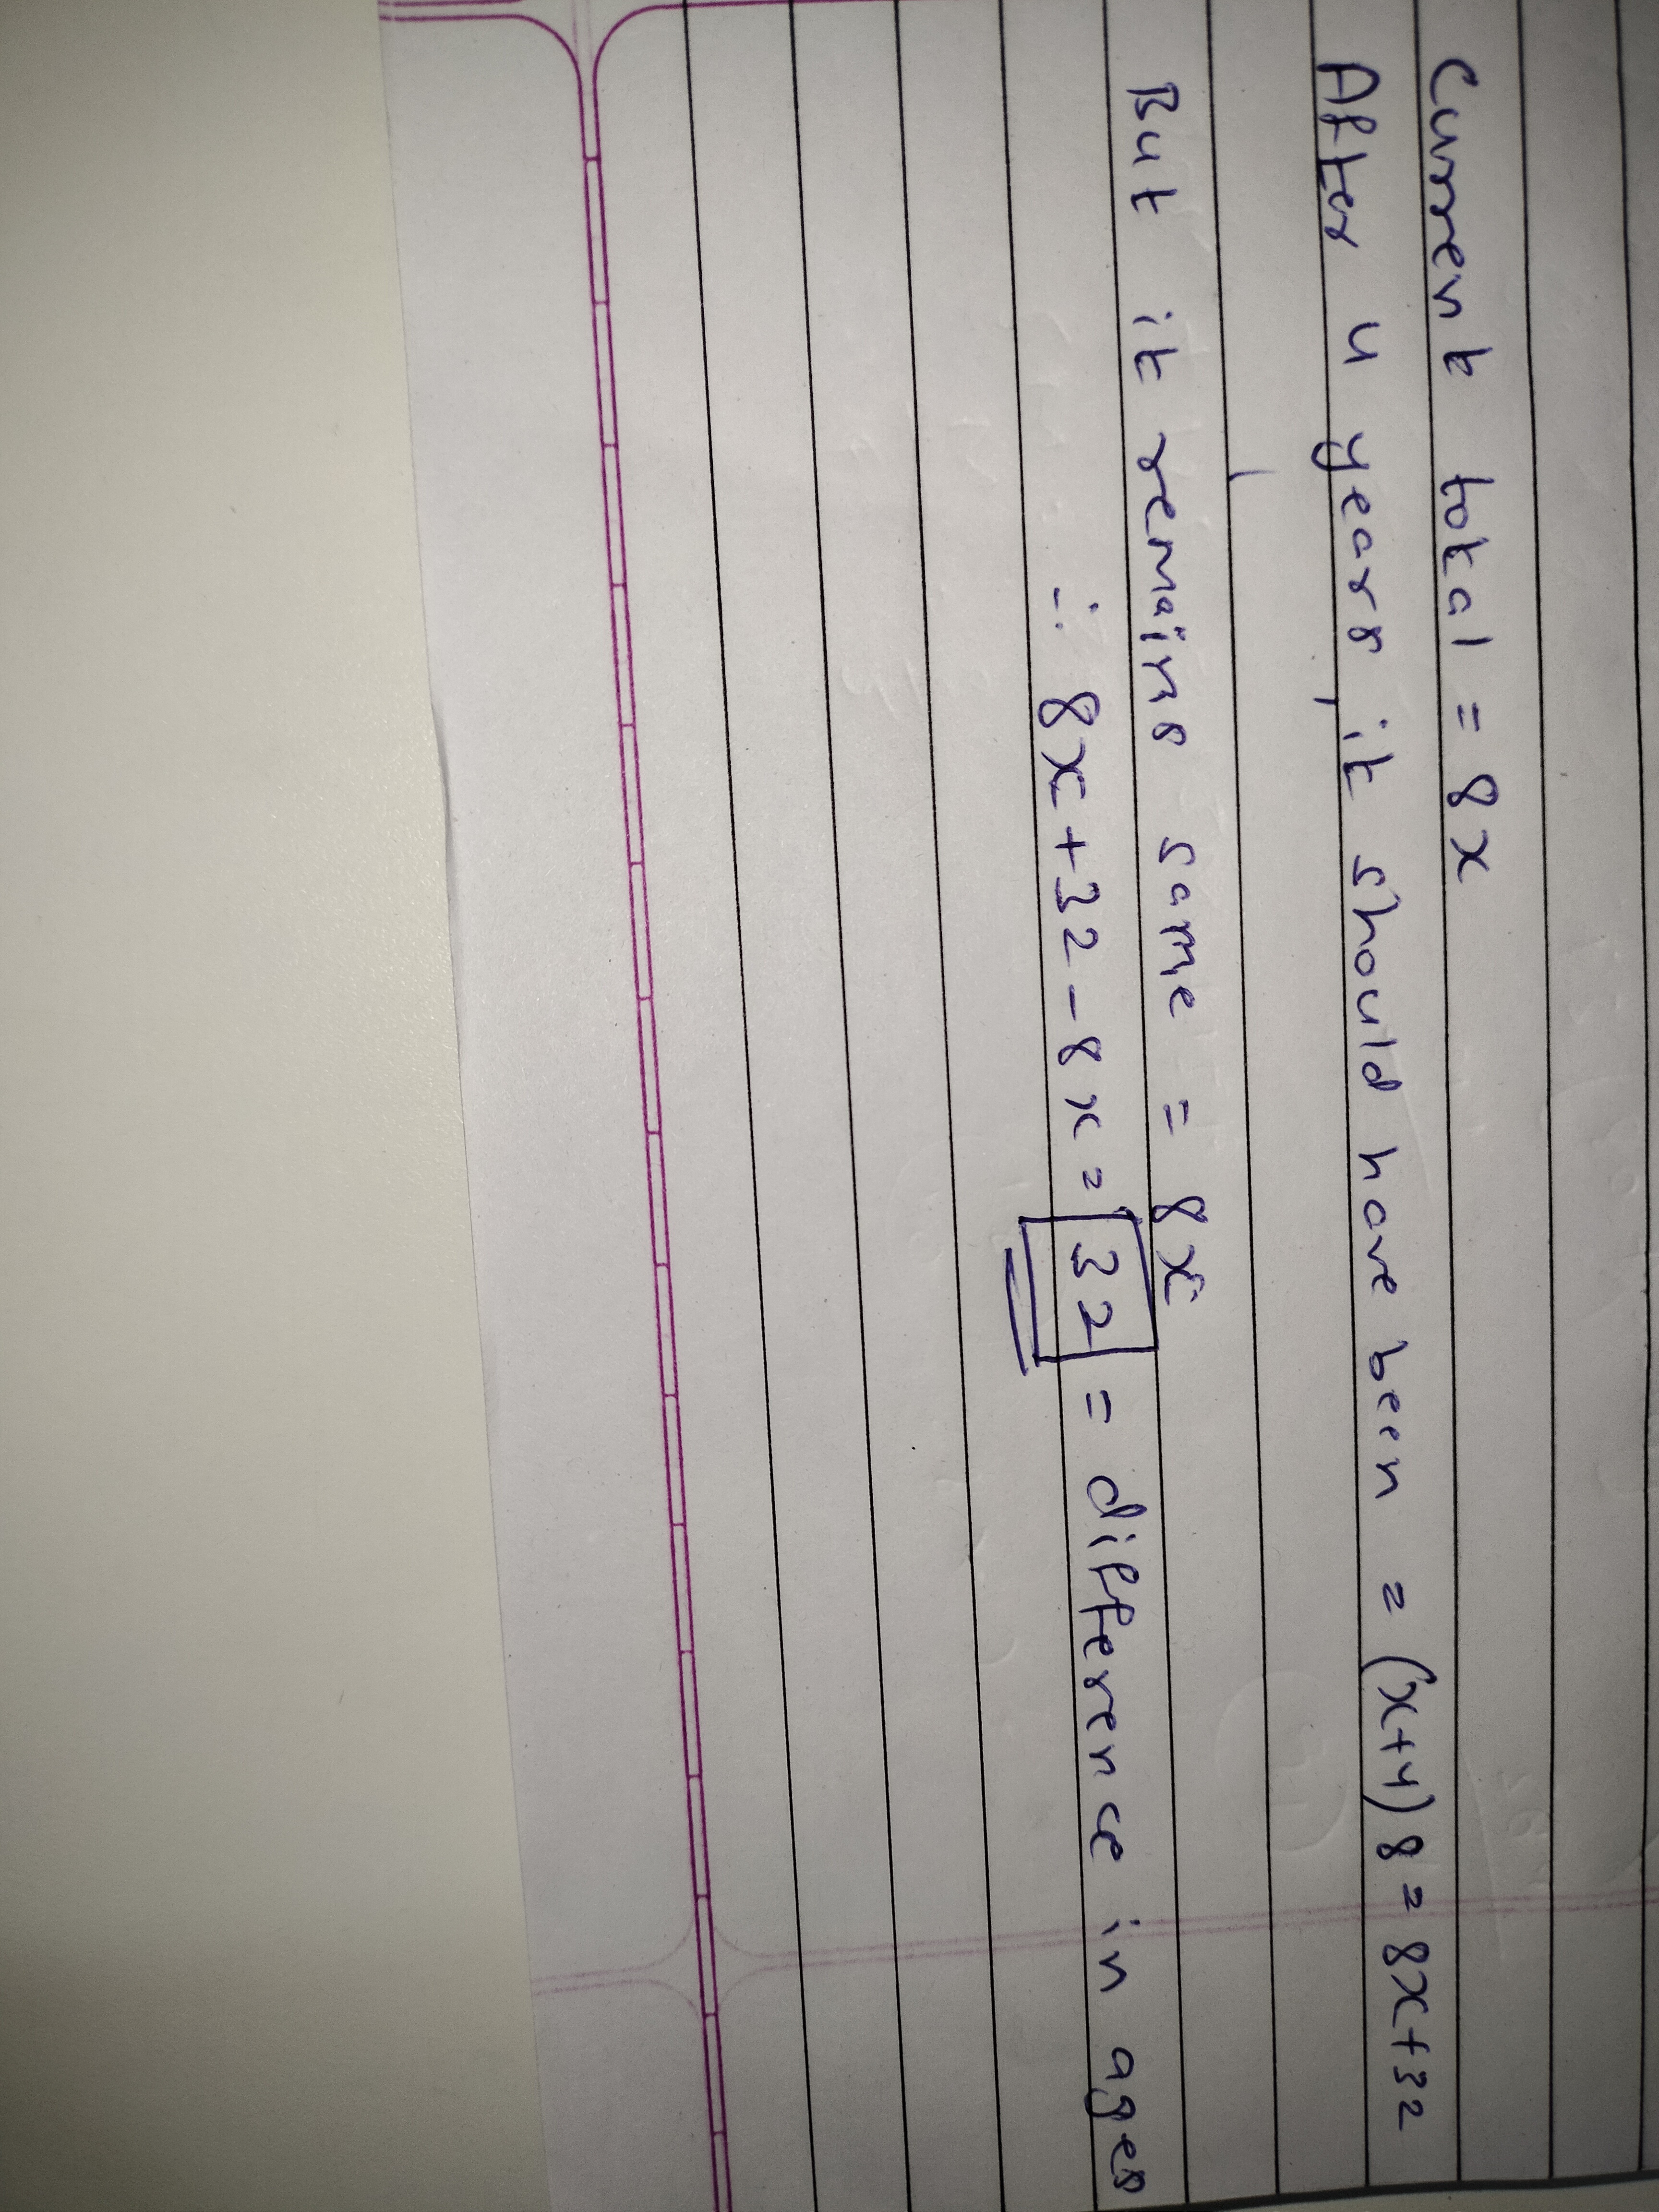 Current total = 8x
After 4 years, it should have been = (x+4)8 = 8x+32
But it remains same = 8x
∴ 8x+32-8x = 32 = difference in ages